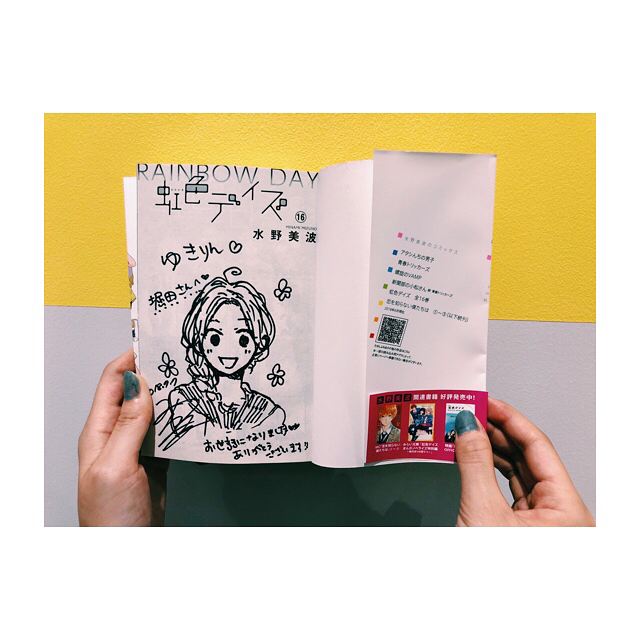 RAINBOW DAY
虹色デイズ
16
MINAMI MIZUNO
水野美波
ゆきりん♡
堀田さんへ
お世話になりました
ありがとうございます!!
水野美波のコミックス
アタシんちの男子
青春トリッカーズ
螺旋のVAMP
新聞部の小松さん
虹色デイズ 全16巻
恋を知らない僕たちは ①~③(以下続刊)
水野美波 関連書籍 好評発売中!